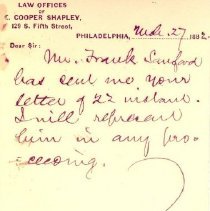 LAW OFFICES
OF
E. COOPER SHAPLEY,
129 S. Fifth Street,
PHILADELPHIA, Mch. 27 188
Dear Sir:
Mr. Frank Sanford
has sent me your
letter of 22 instant.
I will represent
him in any pro-
ceeding.